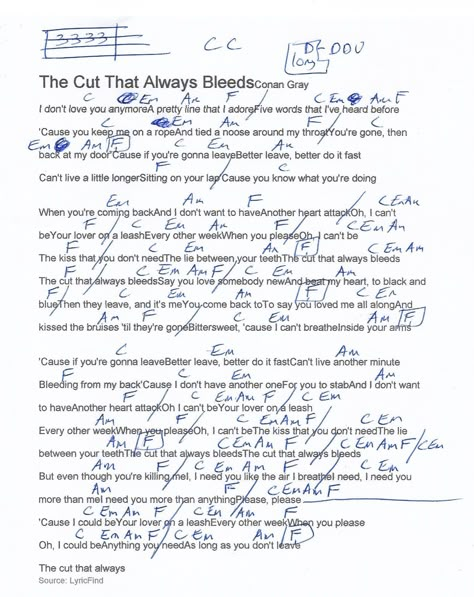 3333
C C
D-DDU
long
The Cut That Always Bleeds Conan Gray
C Em Am F C Em Am F
I don't love you anymoreA pretty line that I adoreFive words that I've heard before
C Em Am F C
'Cause you keep me on a ropeAnd tied a noose around my throatYou're gone, then
Em Am F C Em Am
back at my door'Cause if you're gonna leaveBetter leave, better do it fast
F C
Can't live a little longerSitting on your lap'Cause you know what you're doing
Em Am F C Em Am
When you're coming backAnd I don't want to haveAnother heart attackOh, I can't
F C Em Am F C Em Am
beYour lover on a leashEvery other weekWhen you pleaseOh, I can't be
F C Em Am F C Em Am
The kiss that you don't needThe lie between your teethThe cut that always bleeds
F C Em Am F C Em Am
The cut that always bleedsSay you love somebody newAnd beat my heart, to black and
F C Em Am F C Em
blueThen they leave, and it's meYou come back toTo say you loved me all alongAnd
Am F C Em Am F
kissed the bruises 'til they're goneBittersweet, 'cause I can't breatheInside your arms
C Em Am
'Cause if you're gonna leaveBetter leave, better do it fastCan't live another minute
F C Em Am
Bleeding from my back'Cause I don't have another oneFor you to stabAnd I don't want
F C Em Am F C Em
to haveAnother heart attackOh I can't beYour lover on a leash
Am F C Em Am F C Em
Every other weekWhen you pleaseOh, I can't beThe kiss that you don't needThe lie
Am F C Em Am F C Em Am F C Em
between your teethThe cut that always bleedsThe cut that always bleeds
Am F C Em Am F C Em
But even though you're killing meI, I need you like the air I breatheI need, I need you
Am F C Em Am F
more than meI need you more than anythingPlease, please
C Em Am F C Em Am F
'Cause I could beYour lover on a leashEvery other weekWhen you please
C Em Am F C Em Am F
Oh, I could beAnything you needAs long as you don't leave
The cut that always
Source: LyricFind